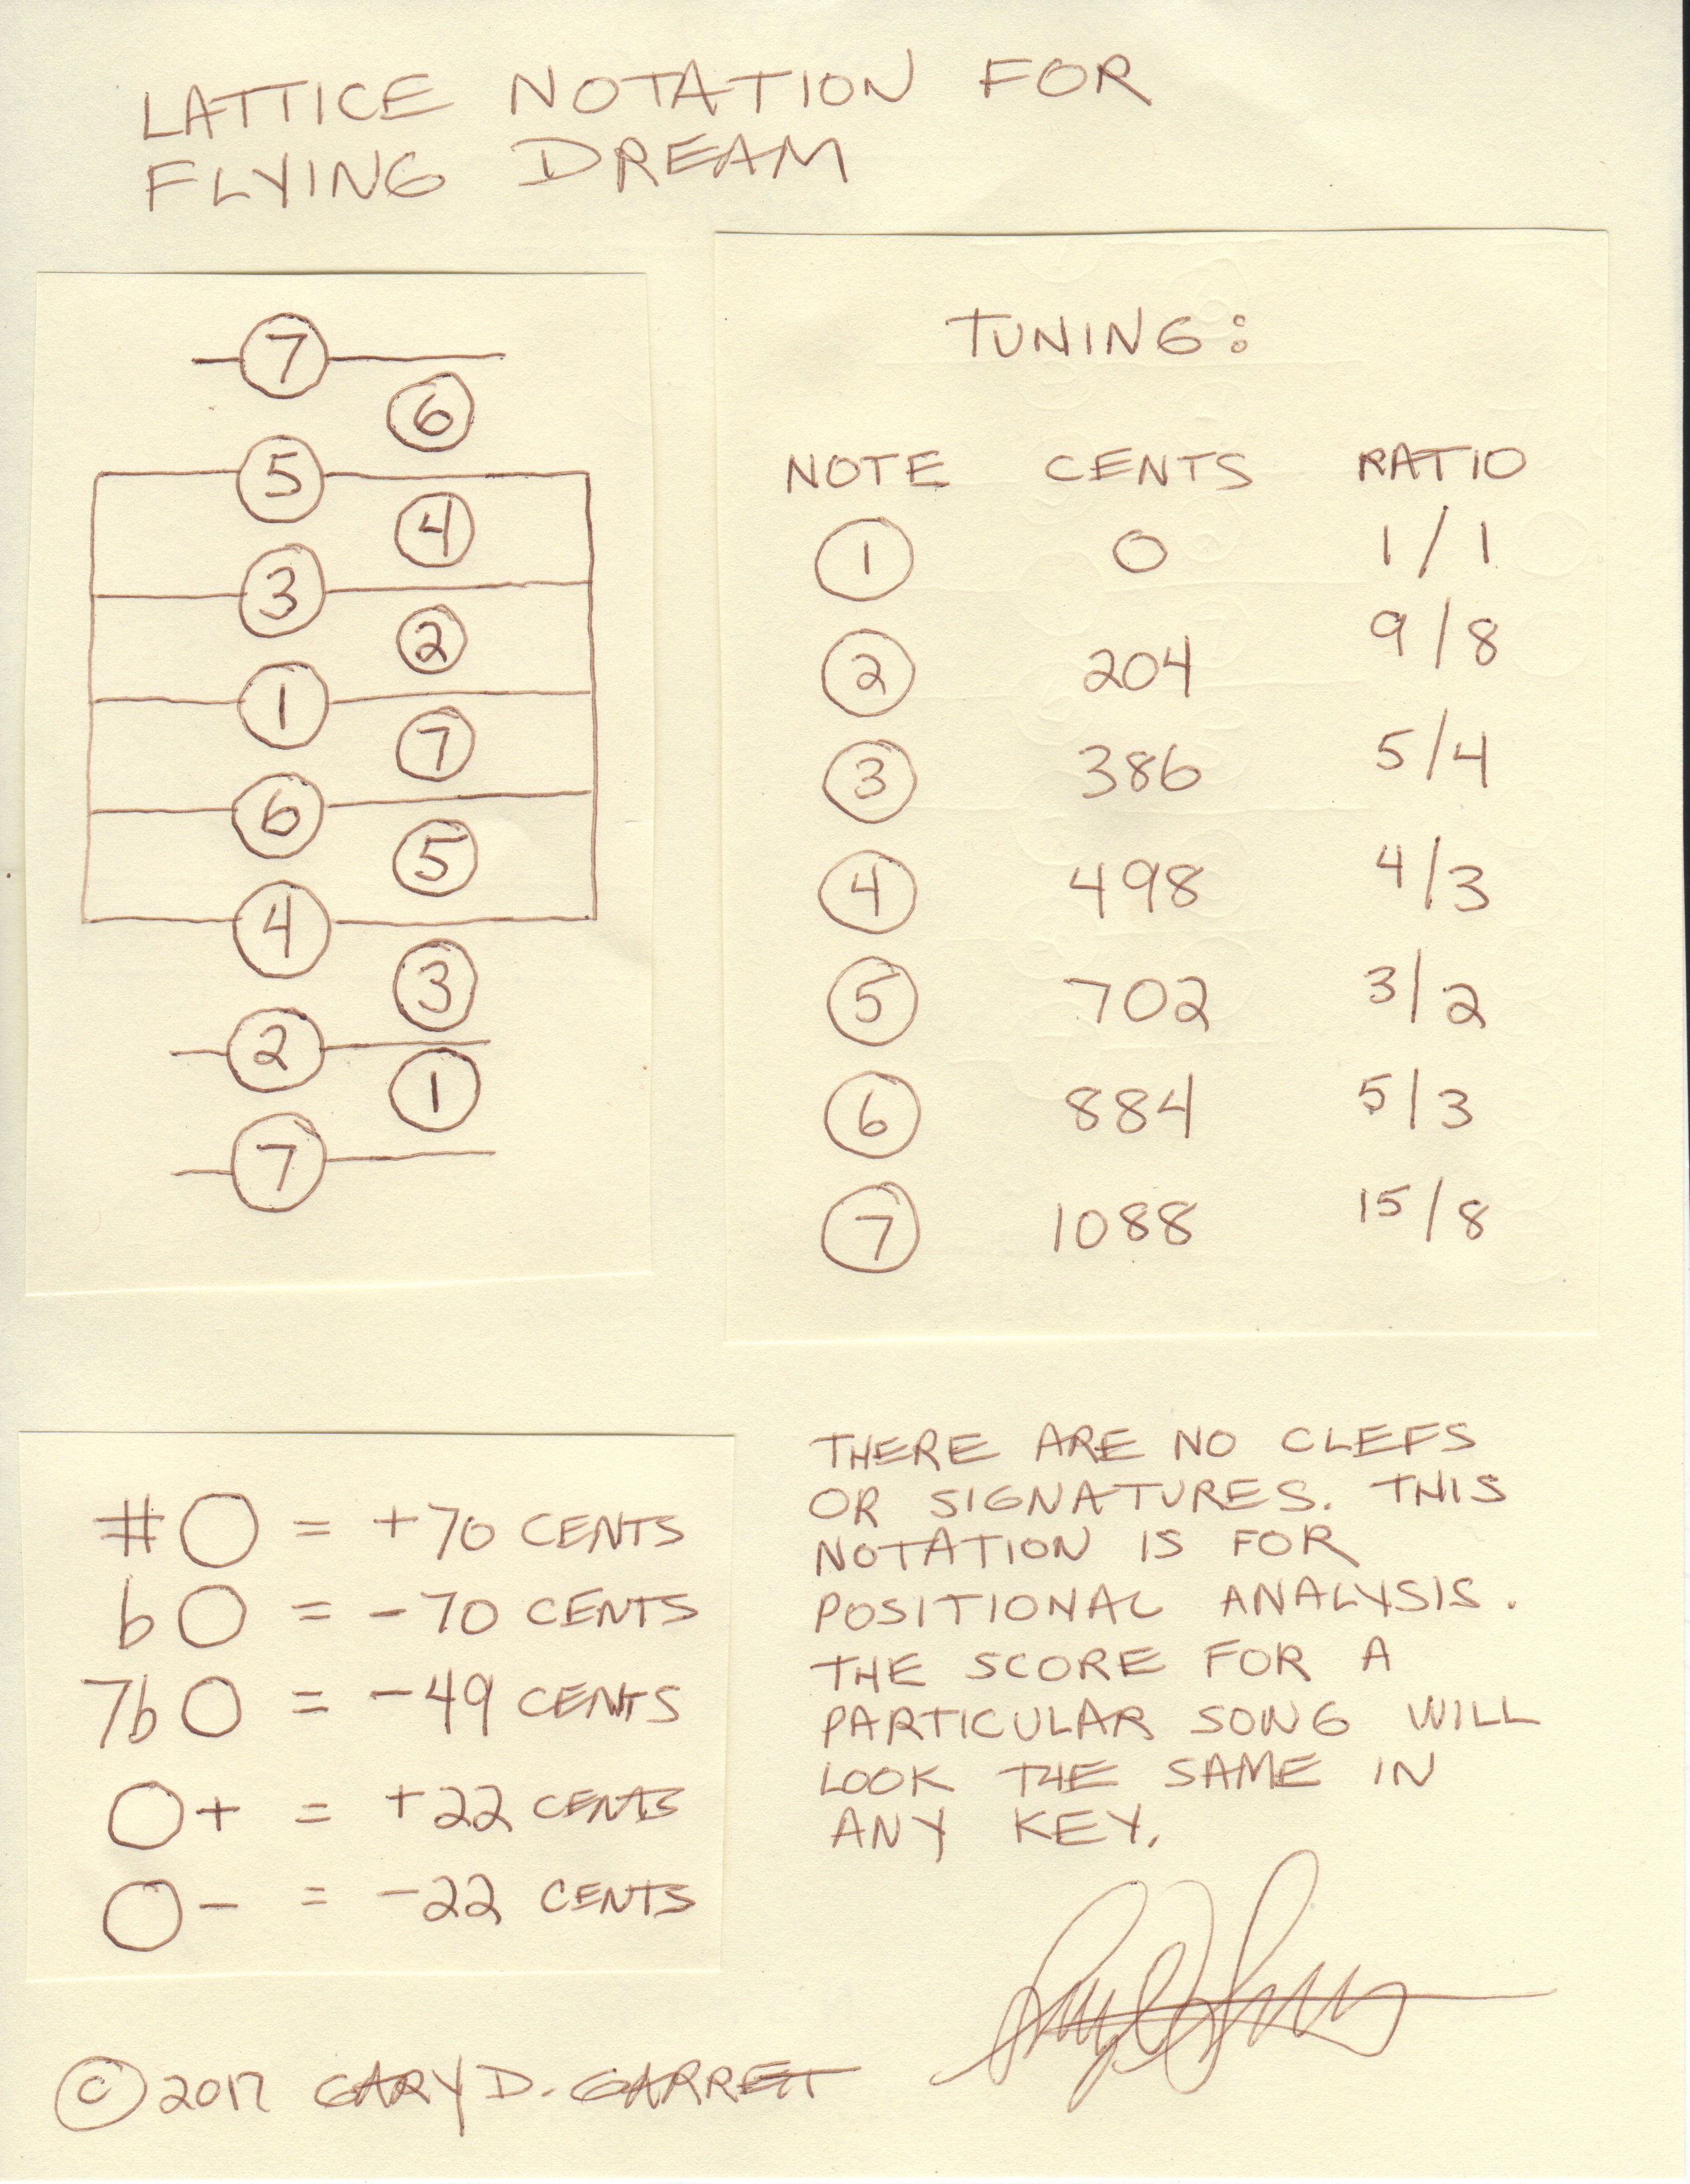 LATTICE NOTATION FOR
FLYING DREAM
7
6
5
4
3
2
1
7
6
5
4
3
2
1
7
TUNING:
NOTE CENTS RATIO
1 0 1/1
2 204 9/8
3 386 5/4
4 498 4/3
5 702 3/2
6 884 5/3
7 1088 15/8
#○ = +70 CENTS
b○ = -70 CENTS
7b○ = -49 CENTS
○+ = +22 CENTS
○- = -22 CENTS
THERE ARE NO CLEFS
OR SIGNATURES. THIS
NOTATION IS FOR
POSITIONAL ANALYSIS.
THE SCORE FOR A
PARTICULAR SONG WILL
LOOK THE SAME IN
ANY KEY.
© GARY D. GARRETT